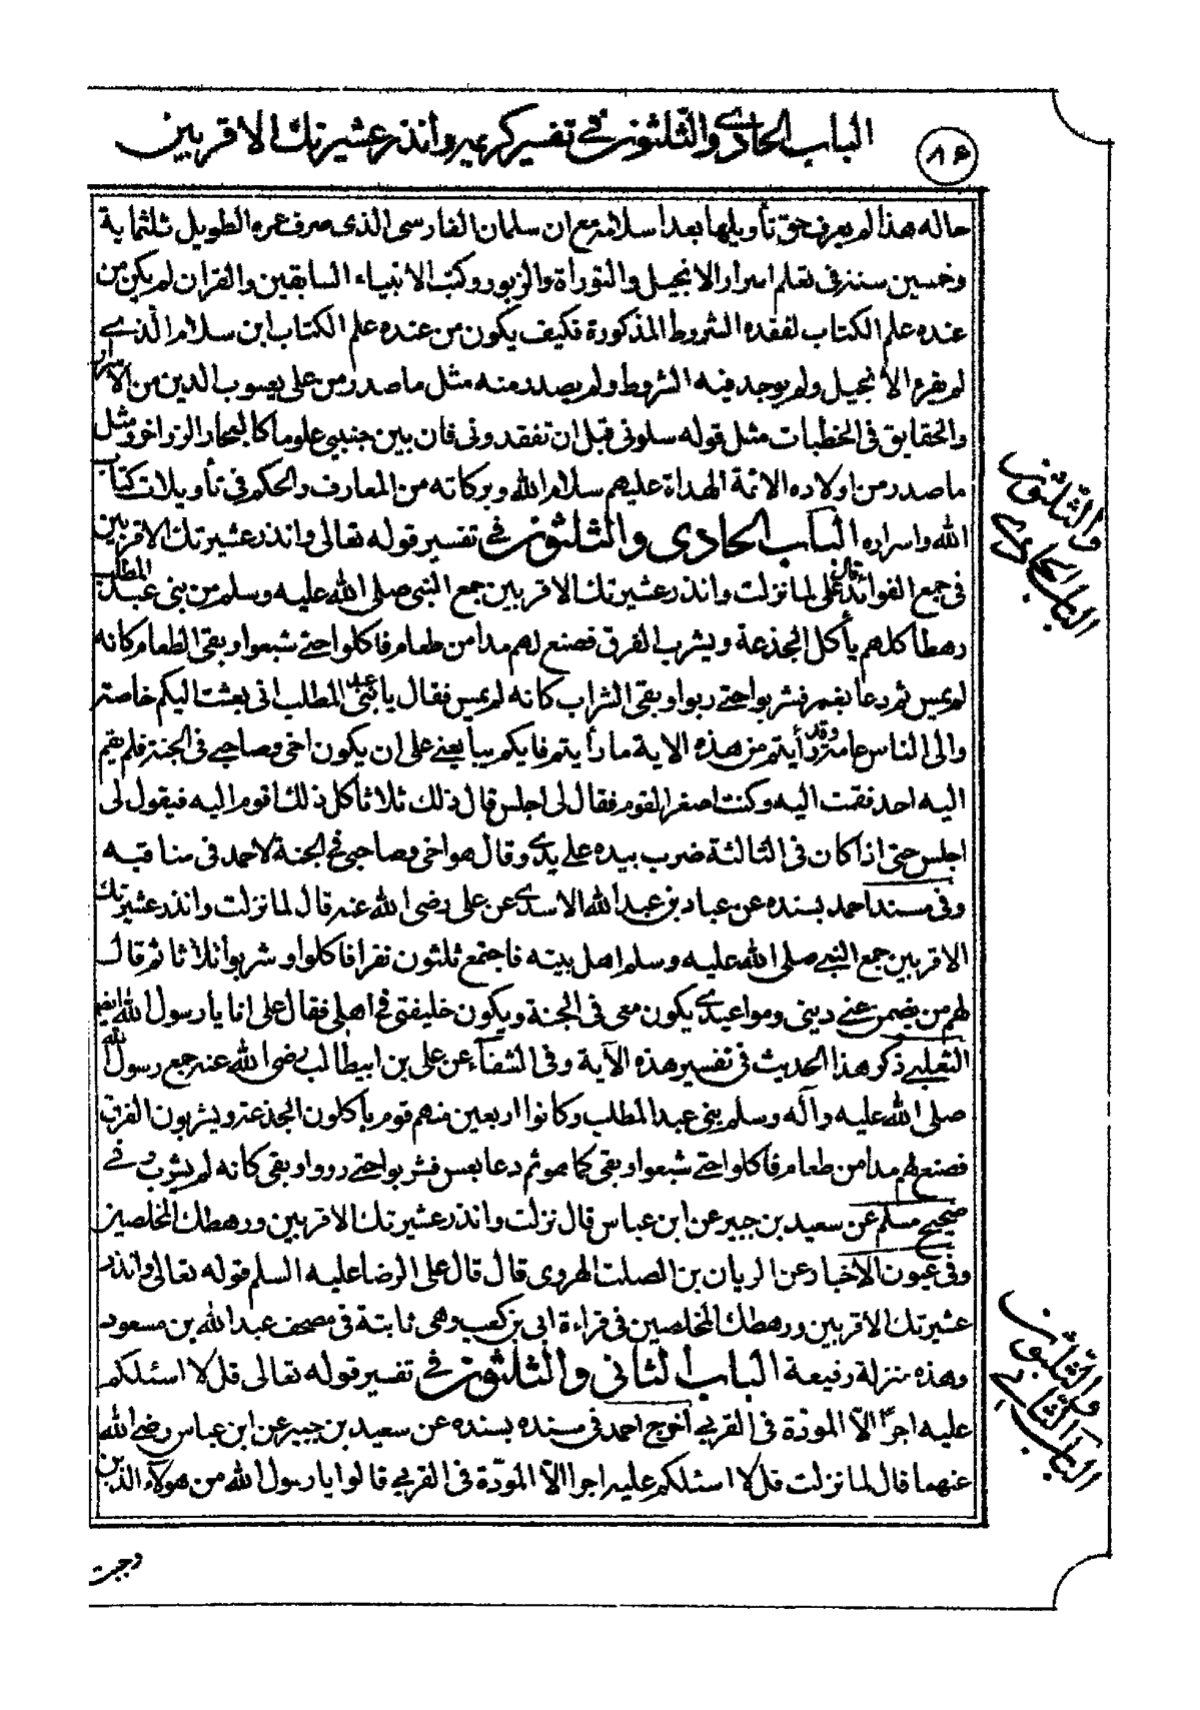 الباب الحادي والثلثون في تفسير كريمة وانذر عشيرتك الاقربين
٨۴
حاله هذا لم يعرف حق تأويلها بعد اسلامه مع ان سلمان الفارسي الذي صرف عمره الطويل ثلثماية
وخمسين سنة في تعلم اسرار الانجيل والتوراة والزبور وكتب الانبياء السابقين والقران لم يكن من
عنده علم الكتاب لفقده الشروط المذكورة فكيف يكون من عنده علم الكتاب ابن سلام الذي
لم يقرء الانجيل ولم يوجد فيه الشروط ولم يصدر منه مثل ما صدر من علي يعسوب الدين من الاسرار
والحقايق في الخطبات مثل قوله سلوني قبل ان تفقدوني فان بين جنبي علوما كالبحار الزواخر ومثل
ما صدر من اولاده الائمة الهداة عليهم سلام الله وبركاته من المعارف والحكم في تأويلات كتاب
الله واسراره الباب الحادي والثلثون في تفسير قوله تعالى وانذر عشيرتك الاقربين
في جمع الفوائد قال علي لما نزلت وانذر عشيرتك الاقربين جمع النبي صلى الله عليه وسلم من بني عبد المطلب
رهطا كلهم يأكل الجذعة ويشرب الفرق فصنع لهم مدا من طعام فاكلوا حتى شبعوا وبقي الطعام كانه
لم يمس ثم دعا بغمر فشربوا حتى رووا وبقي الشراب كانه لم يمس فقال يا بني عبد المطلب اني بعثت اليكم خاصة
والى الناس عامة وقد رأيتم من هذه الاية ما رأيتم فايكم يبايعني على ان يكون اخي وصاحبي في الجنة فلم يقم
اليه احد فقمت اليه وكنت اصغر القوم فقال لي اجلس قال ذلك ثلاثا كل ذلك اقوم اليه فيقول لي
اجلس حتى اذا كان في الثالثة ضرب بيده على يدي وقال هو اخي وصاحبي في الجنة لاحمد في مناقبه
وفي مسند احمد بسنده عن عباد بن عبد الله الاسدي عن علي رضي الله عنه قال لما نزلت وانذر عشيرتك
الاقربين جمع النبي صلى الله عليه وسلم اهل بيته فاجتمع ثلثون نفرا فاكلوا وشربوا ثلاثا ثم قال
لهم من يضمن عني ديني ومواعيدي يكون معي في الجنة ويكون خليفتي في اهلي فقال علي انا يا رسول الله ايضا
الثعلبي ذكر هذا الحديث في تفسير هذه الآية وفي الشفآء عن علي بن ابيطالب رضي الله عنه جمع رسول الله
صلى الله عليه وآله وسلم بني عبد المطلب وكانوا اربعين منهم قوم يأكلون الجذعة ويشربون الفرق
فصنع لهم مدا من طعام فاكلوا حتى شبعوا وبقي كما هو ثم دعا بعس فشربوا حتى رووا وبقي كانه لم يشرب وفي
صحيح مسلم عن سعيد بن جبير عن ابن عباس قال نزلت وانذر عشيرتك الاقربين ورهطك المخلصين
وفي عيون الاخبار عن الريان بن الصلت الهروي قال قال علي الرضا عليه السلم قوله تعالى وانذر
عشيرتك الاقربين ورهطك المخلصين في قراءة ابي بن كعب وهي ثابتة في مصحف عبد الله بن مسعود
وهذه منزلة رفيعة الباب الثاني والثلثون في تفسير قوله تعالى قل لا اسئلكم
عليه اجرا الا المودة في القربى اخرج احمد في مسنده بسنده عن سعيد بن جبير عن ابن عباس رضي الله
عنهما قال لما نزلت قل لا اسئلكم عليه اجرا الا المودة في القربى قالوا يا رسول الله من هولآء الذين
وجبت
الباب الحادي
والثلثون
الباب الثاني
والثلثون